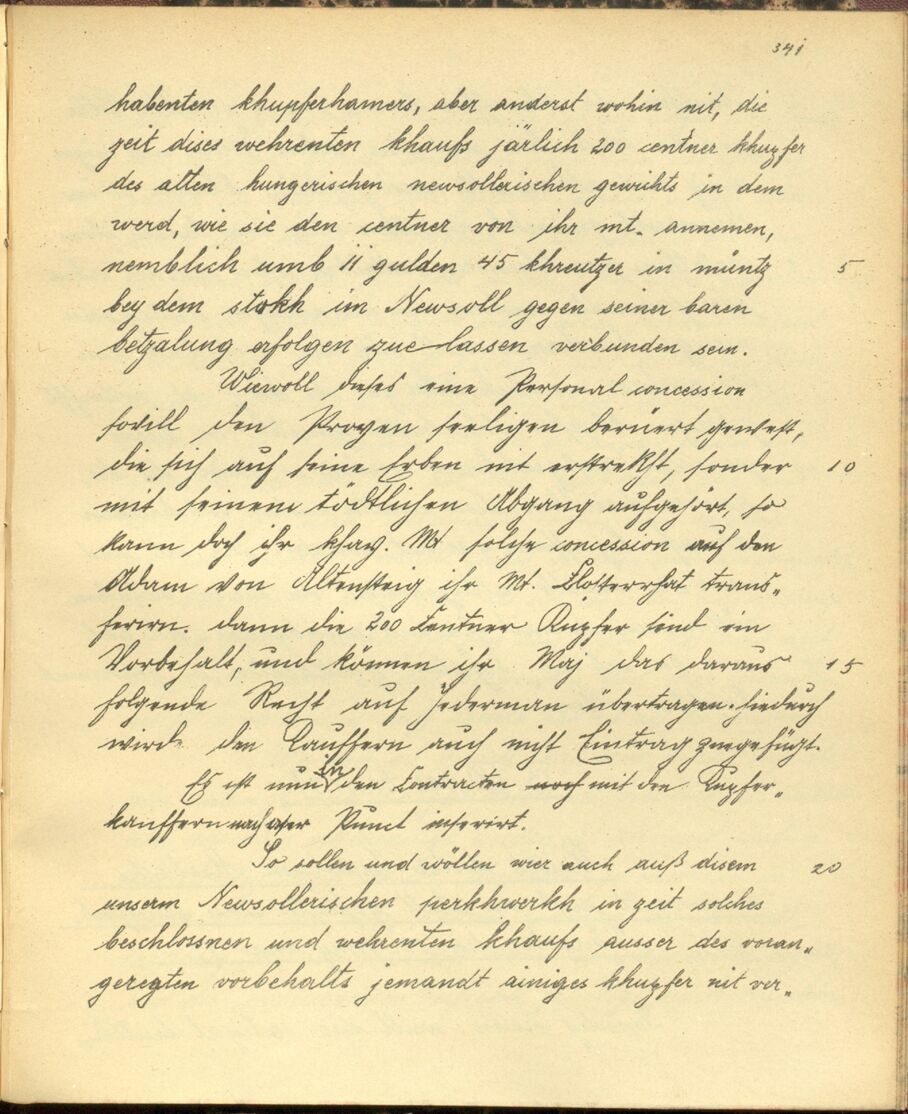 341
habenten khupferhamers, aber anderst wohin nit, die
zeit dises wehrenten khaufs järlich 200 centner khupfer
des alten hungerischen newsollerischen gewichts in dem
werd, wie sie den centner von ihr mt. annemen,
nemblich umb 11 gulden 45 khreutzer in müntz 5
bey dem stokh im Newsoll gegen seiner baren
betzalung erfolgen zue lassen verbunden sein.
Wiewoll dieses eine Personal concession
sovill den Proyen seeligen berüert gewest,
die sich auf seine Erben nit erstrekht, sonder 10
mit seinem tödtlichen Abgang aufgehört, so
kann doch ihr khay. Mt solche concession auf den
Adam von Altensteig ihr Mt. Closterrhat trans„
ferirn. dann die 200 Centner Kupfer sind ein
Vorbehalt, und können ihr Maj das daraus 15
folgende Recht auf Jederman übertragen. hiedurch
wird den Kauffern auch nicht Eintrag zuegefügt.
Es ist nun in den Contracten noch mit den Kupfer„
kauffern nach Punct inserirt.
So sollen und wöllen wier auch auß disem 20
unserm Newsollerischen perkhwerkh in zeit solches
beschlossnen und wehrenten khaufs ausser des voran„
geregten vorbehalts jemandt ainiges khupfer nit ver„